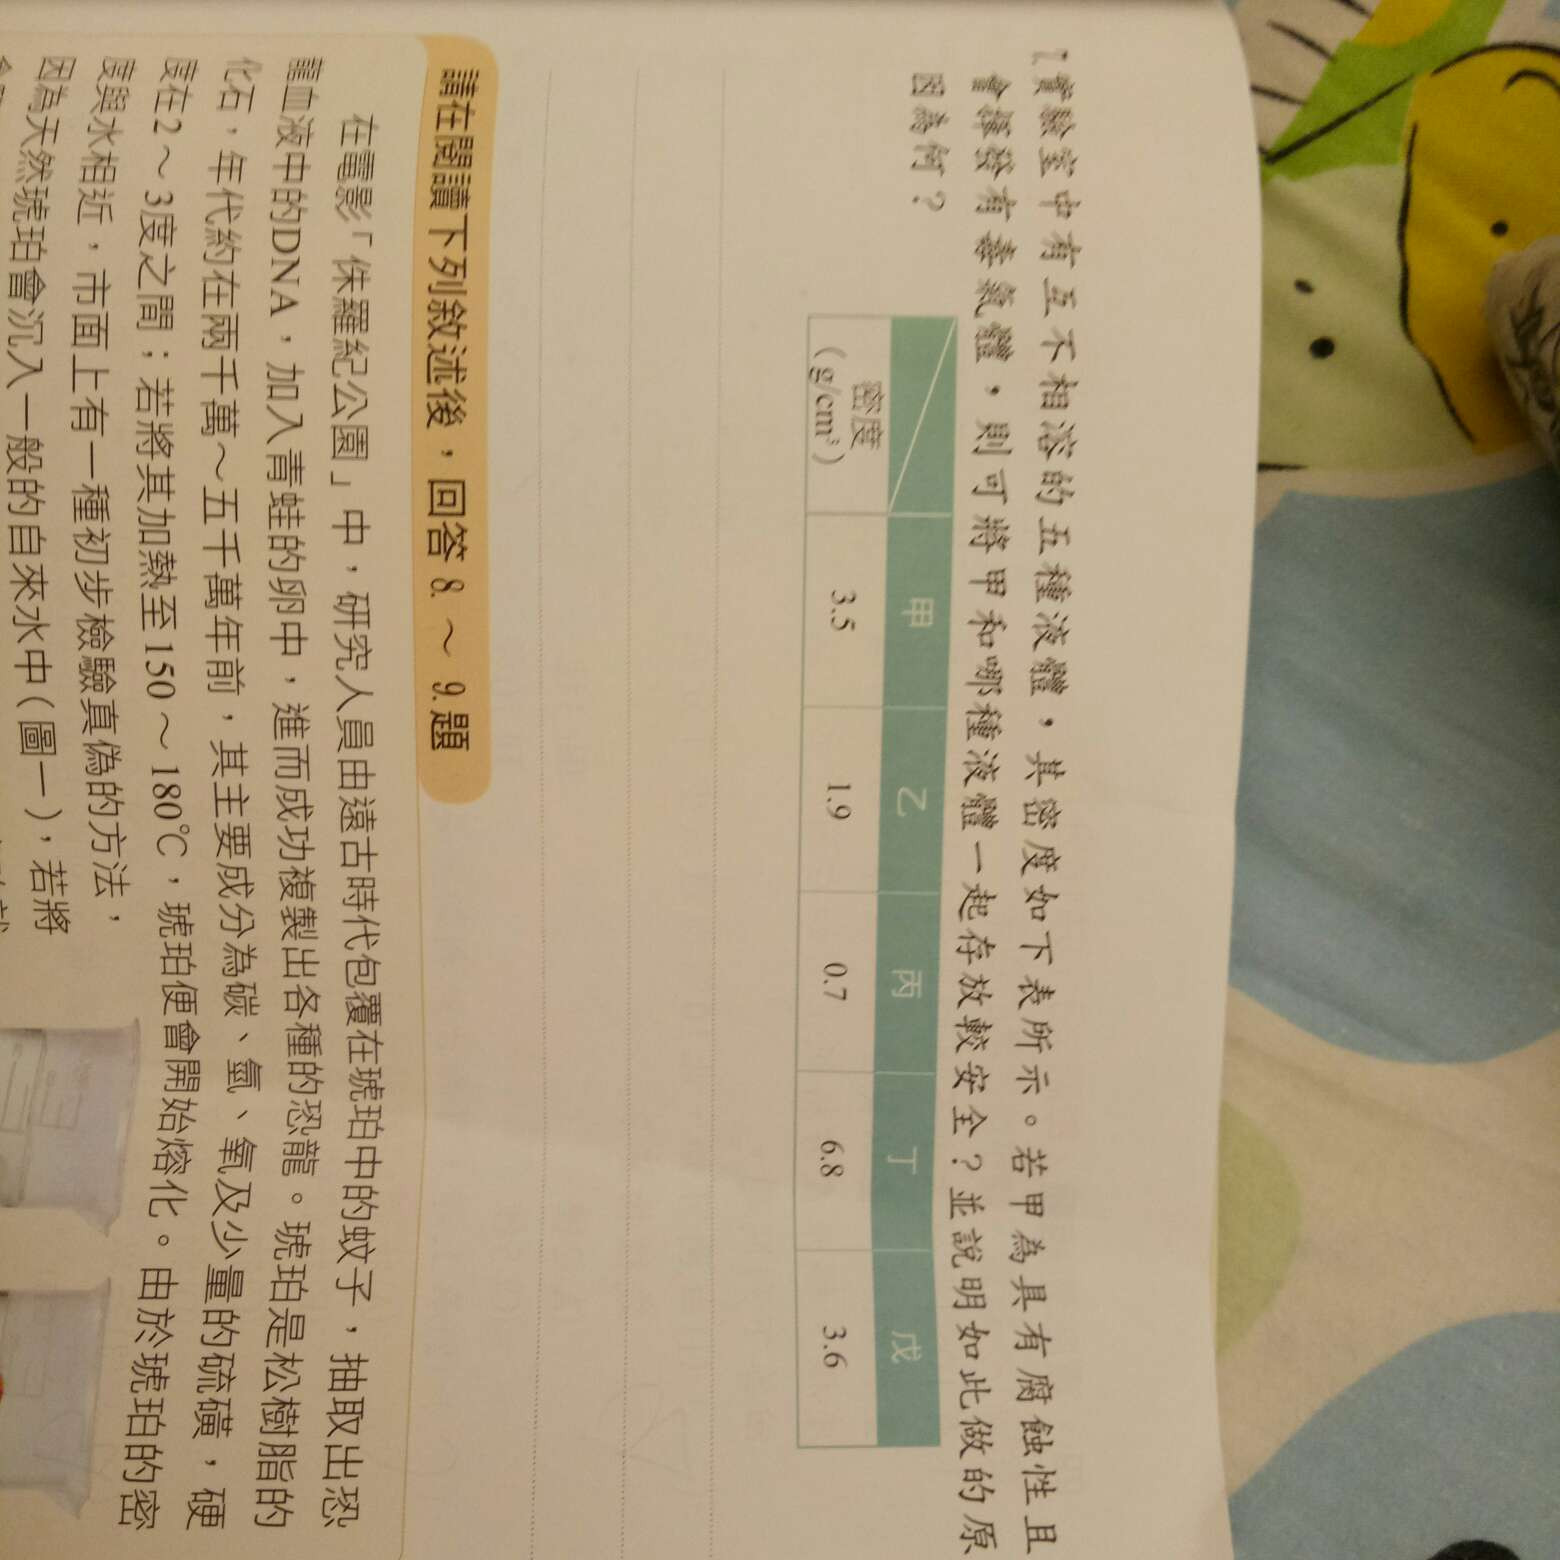 7. 實驗室中有互不相溶的五種液體，其密度如下表所示。若甲為具有腐蝕性且
會揮發有毒氣體，則可將甲和哪種液體一起存放較安全？並說明如此做的原
因為何？
甲 乙 丙 丁 戊
密度
(g/cm³) 3.5 1.9 0.7 6.8 3.6
請在閱讀下列敘述後，回答 8. ～ 9. 題
在電影「侏羅紀公園」中，研究人員由遠古時代包覆在琥珀中的蚊子，抽取出恐
龍血液中的DNA，加入青蛙的卵中，進而成功複製出各種的恐龍。琥珀是松樹脂的
化石，年代約在兩千萬～五千萬年前，其主要成分為碳、氫、氧及少量的硫磺，硬
度在2～3度之間；若將其加熱至150～180℃，琥珀便會開始熔化。由於琥珀的密
度與水相近，市面上有一種初步檢驗真偽的方法，
因為天然琥珀會沉入一般的自來水中（圖一），若將